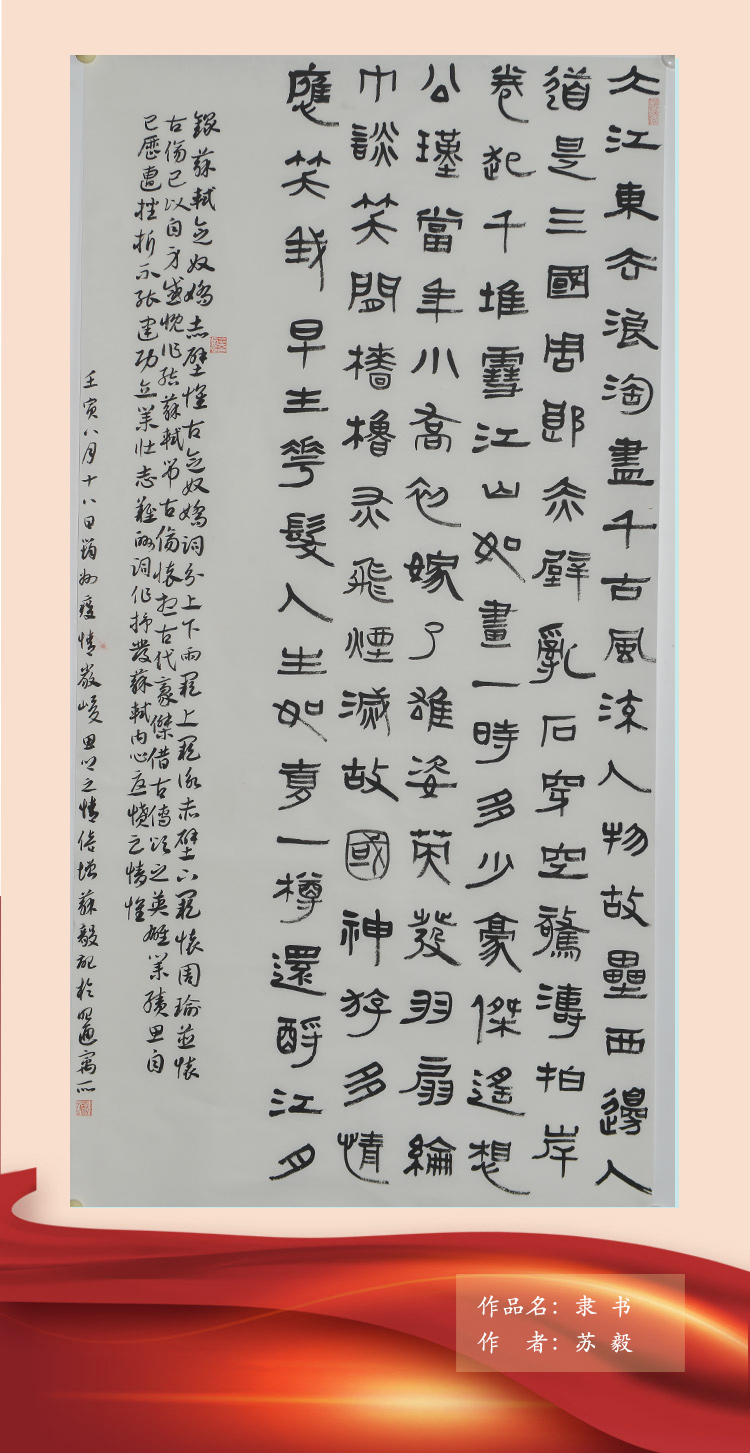 大江東去浪淘盡千古風流人物故壘西邊人
道是三國周郎赤壁亂石穿空驚濤拍岸
卷起千堆雪江山如畫一時多少豪傑遙想
公瑾當年小喬初嫁了雄姿英發羽扇綸
巾談笑間檣櫓灰飛煙滅故國神游多情
應笑我早生華髮人生如夢一樽還酹江月
錄蘇軾念奴嬌赤壁懷古念奴嬌詞分上下兩闋上闋詠赤壁下闋懷周瑜並懷
古傷己以自身感慨作結蘇軾弔古傷懷想古代豪傑借古傳頌之英雄業績思自
己歷遭挫折不能建功立業壯志難酬詞作抒發蘇軾內心憂憤之情懷
壬寅八月十八日疫情嚴峻思之情倍增蘇毅記於昭通寓所
作品名：隶 书
作 者：苏 毅